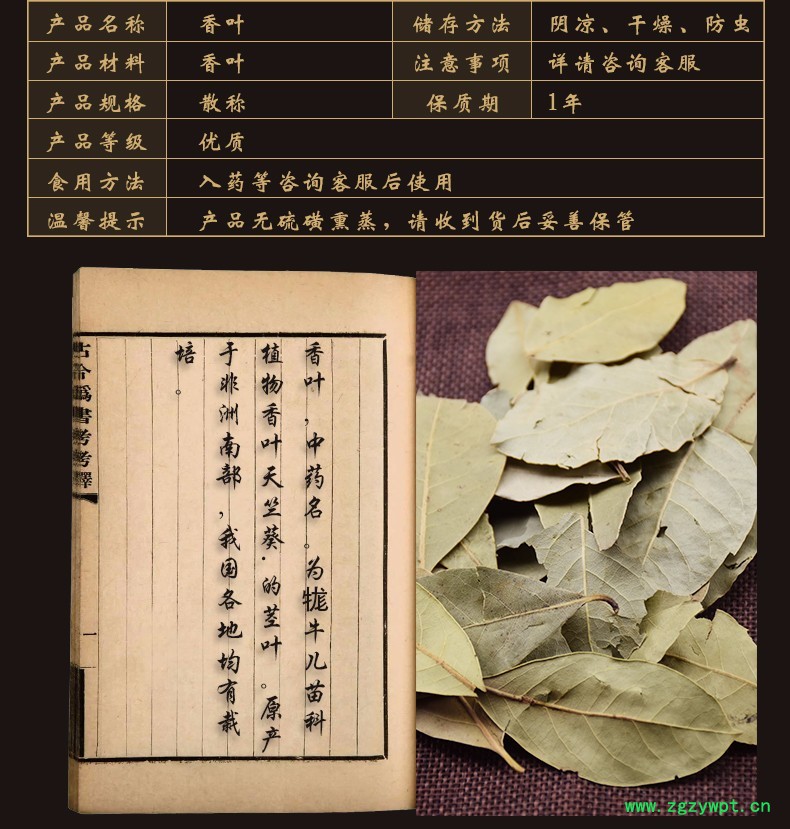 产品名称 香叶 储存方法 阴凉、干燥、防虫
产品材料 香叶 注意事项 详请咨询客服
产品规格 散称 保质期 1年
产品等级 优质
食用方法 入药等咨询客服后使用
温馨提示 产品无硫磺熏蒸，请收到货后妥善保管
香叶，中药名。为牻牛儿苗科
植物香叶天竺葵.的茎叶。原产
于非洲南部，我国各地均有栽
培。
古今爲書考考釋
一
www.zgzywpt.cn